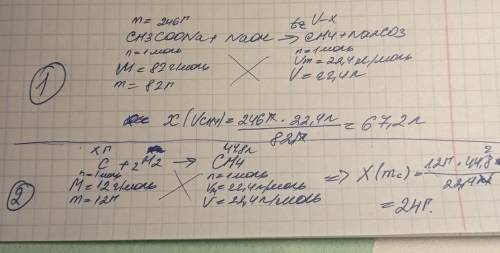 m = 246г V-X
CH3COONa + NaOH → CH4 + Na2CO3
n = 1 моль n = 1 моль
M = 82 г/моль Vm = 22,4 л/моль
m = 82г V = 22,4 л
1
X (VCH4) = 246г · 22,4 л / 82г = 67,2 л
Xг 44,8 л
C + 2H2 → CH4
n = 1 моль n = 1 моль
M = 12 г/моль Vm = 22,4 л/моль
m = 12г V = 22,4 л/моль
2
=> X (mc) = 12г · 44,8 2 / 22,4
= 24г.